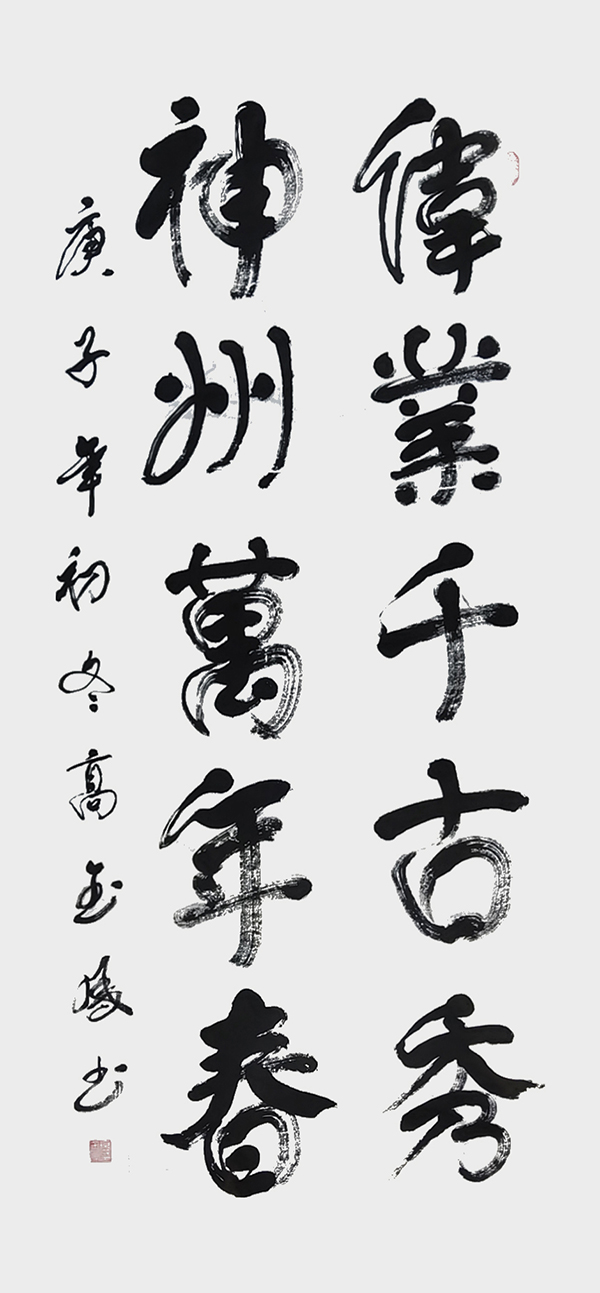 偉業千古秀
神州萬年春
庚子年初冬高玉鳳书